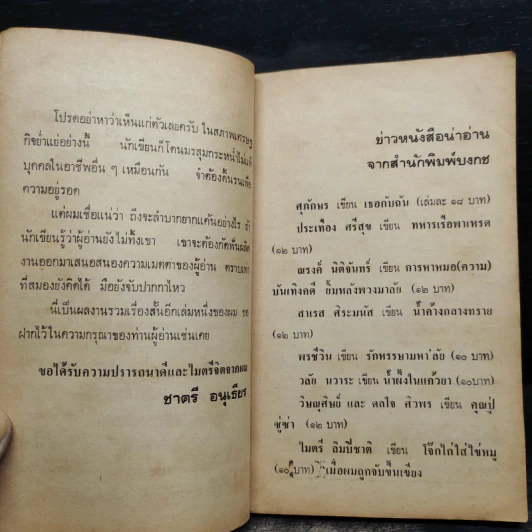 โปรดอย่าหาว่าเห็นแก่ตัวเลยครับ ในสภาพเศรษฐ
กิจย่ำแย่อย่างนี้ นักเขียนก็โดนมรสุมกระหน่ำไม่แพ้
บุคคลในอาชีพอื่น ๆ เหมือนกัน จำต้องดิ้นรนเพื่อ
ความอยู่รอด
แต่ผมเชื่อแน่ว่า ถึงจะลำบากยากแค้นอย่างไร ถ้า
นักเขียนรู้ว่าผู้อ่านยังไม่ทิ้งเขา เขาจะต้องกัดฟันผลิต
งานออกมาเสนอสนองความเมตตาของผู้อ่าน ตราบเท่า
ที่สมองยังคิดได้ มือยังจับปากกาไหว
นี่เป็นผลงานรวมเรื่องสั้นอีกเล่มหนึ่งของผม ขอ
ฝากไว้ในความกรุณาของท่านผู้อ่านเช่นเคย
ขอได้รับความปรารถนาดีและไมตรีจิตจากผม
ชาตรี อนุเธียร
ข่าวหนังสือน่าอ่าน
จากสำนักพิมพ์บงกช
ศุภักษร เขียน เธอกับฉัน (เล่มละ ๑๘ บาท)
ประเทือง ศรีสุข เขียน ทหารเรือพาเหรด
(๑๒ บาท)
ณรงค์ นิติจันทร์ เขียน การหาหมอ(ความ)
บันเทิงคดี ยิ้มหลังพวงมาลัย (๑๒ บาท)
สาเรส ศิระมนัส เขียน น้ำค้างกลางทราย
(๑๒ บาท)
พรชีวิน เขียน รักพรรษามหา'ลัย (๑๐ บาท)
วลัย นวาระ เขียน น้ำผึ้งในแก้วยา (๑๐บาท)
วิษณุศิษย์ และ ดลใจ ศิวพร เขียน คุณปู่
ซู่ซ่า (๑๒ บาท)
ไมตรี ลิมปิชาติ เขียน โจ๊กไก่ใส่ไข่หมู
(๑๐ เมื่อผมถูกจับขึ้นเขียง